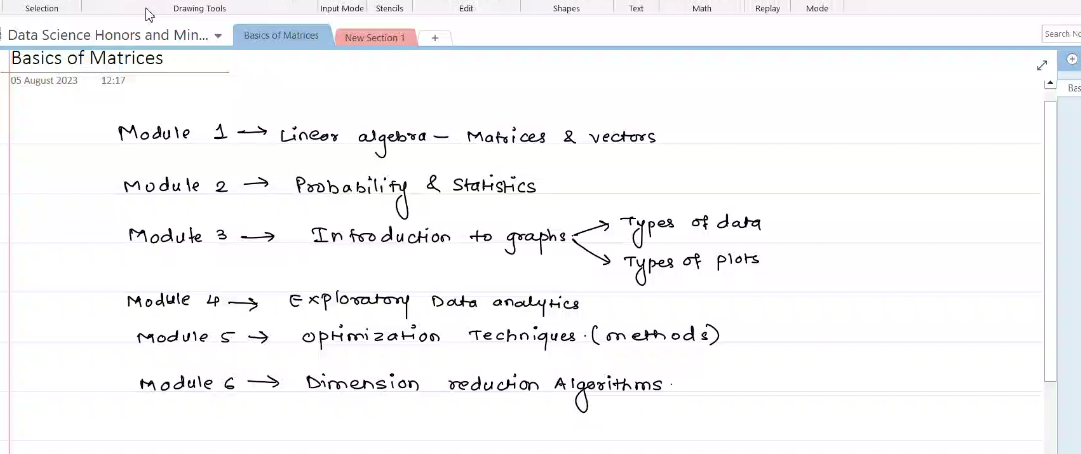 Selection Drawing Tools Input Mode Stencils Edit Shapes Text Math Replay Mode
Data Science Honors and Min... Basics of Matrices New Section 1 + Search
Basics of Matrices
05 August 2023 12:17
Bas
Module 1 → Linear algebra – Matrices & vectors
Module 2 → Probability & Statistics
Module 3 → Introduction to graphs → Types of data
→ Types of plots
Module 4 → Exploratory Data analytics
Module 5 → Optimization Techniques. (methods)
Module 6 → Dimension reduction Algorithms.